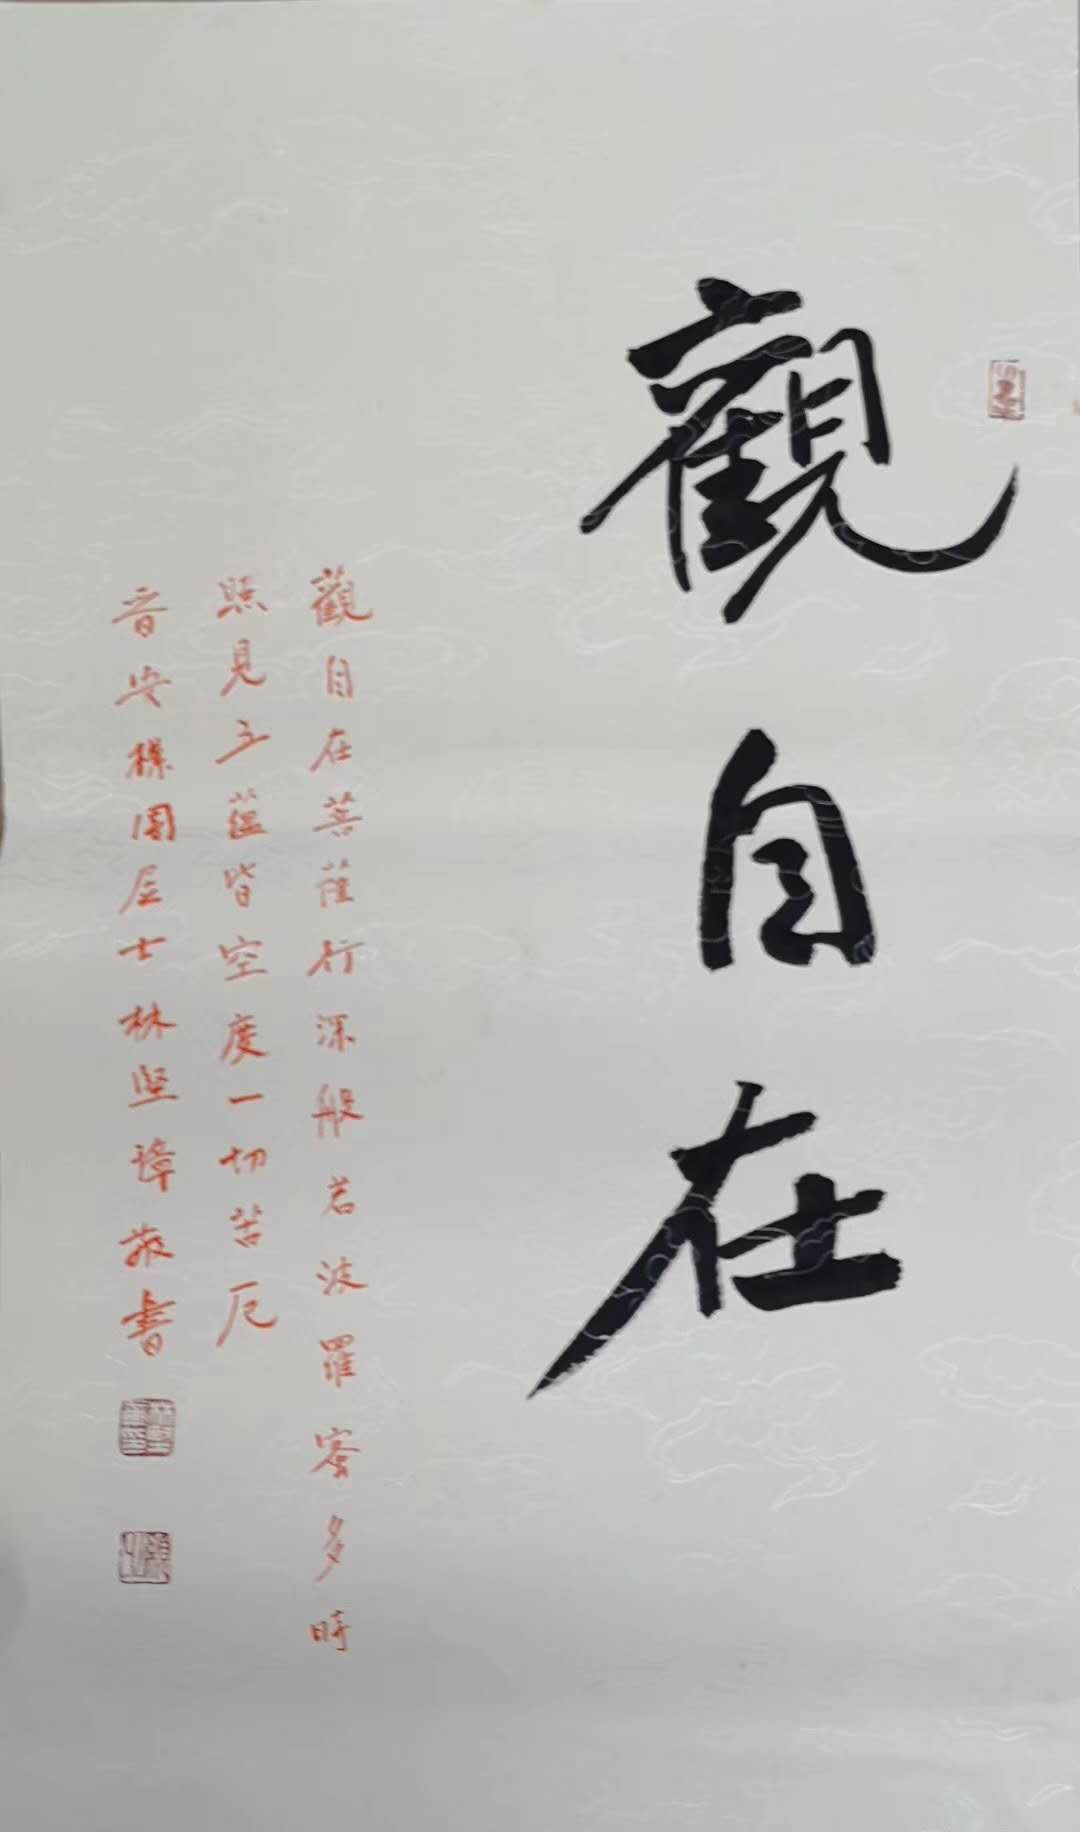 觀自在
觀自在菩薩行深般若波羅密多時
照見五蘊皆空度一切苦厄
晉安樣園居士林堅璋敬書